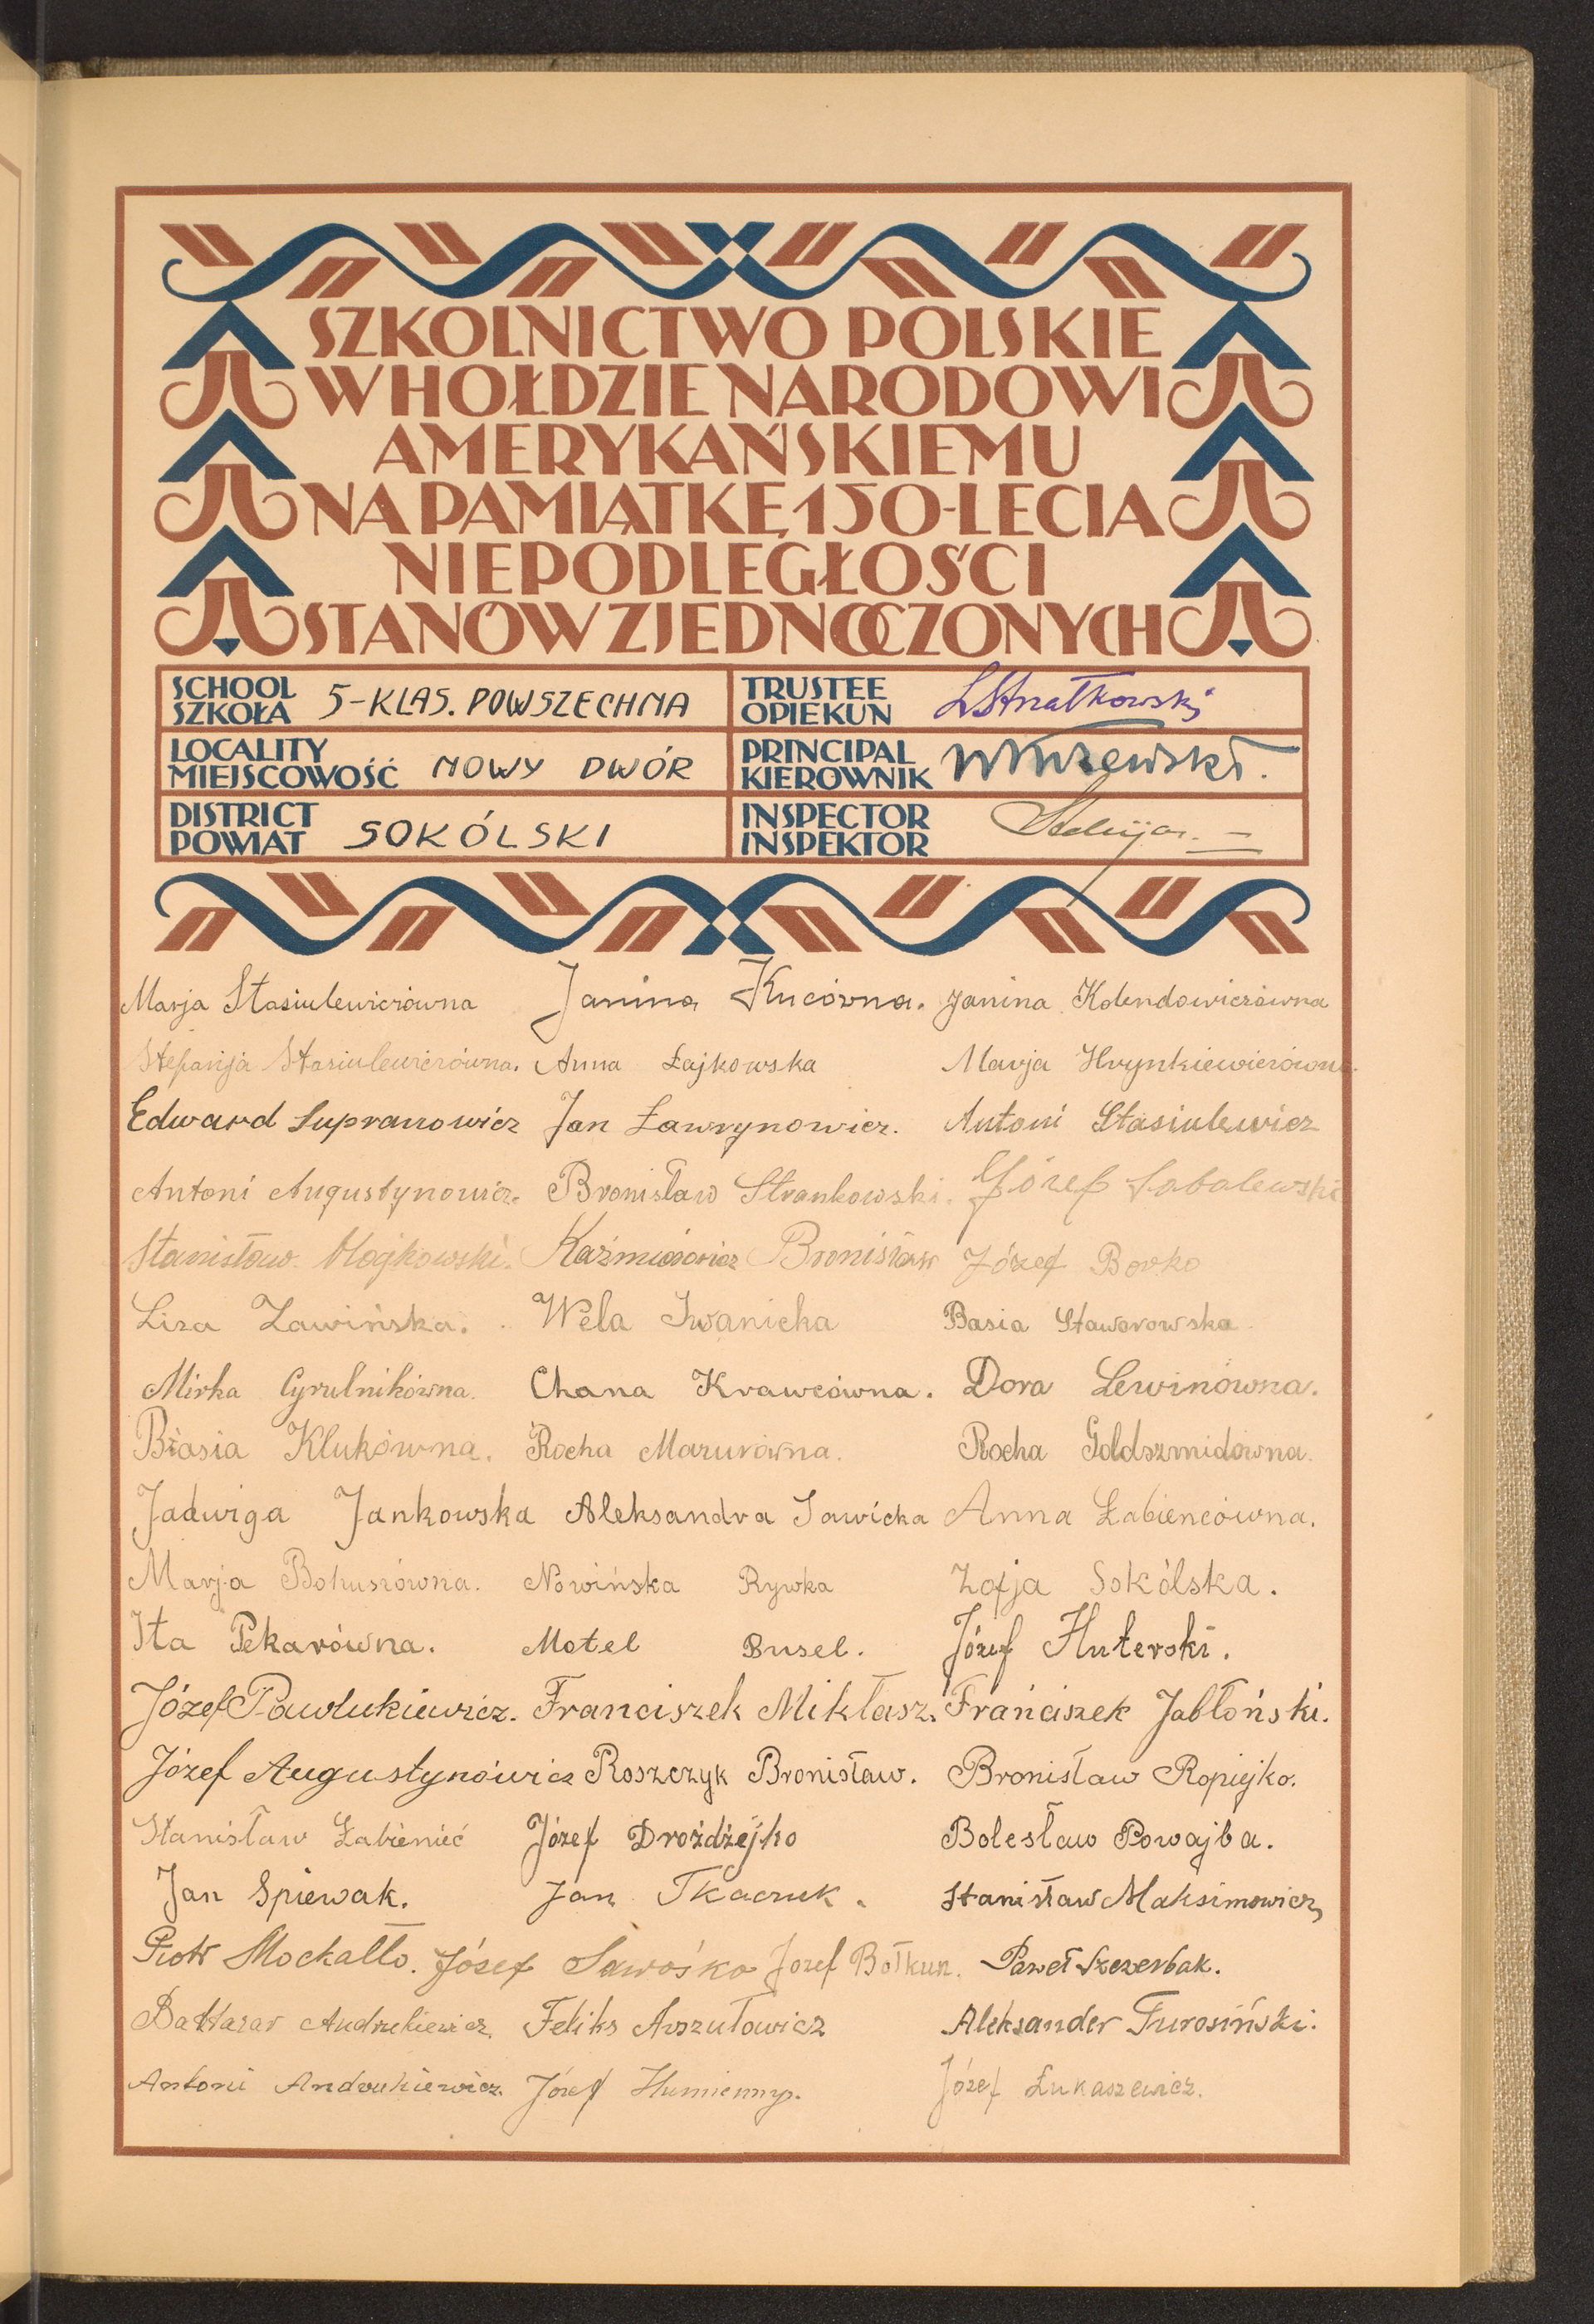 SZKOLNICTWO POLSKIE
W HOŁDZIE NARODOWI
AMERYKAŃSKIEMU
NA PAMIĄTKĘ 150-LECIA
NIEPODLEGŁOŚCI
STANÓW ZJEDNOCZONYCH
SCHOOL
SZKOŁA 5-KLAS. POWSZECHNA
TRUSTEE
OPIEKUN
LOCALITY
MIEJSCOWOŚĆ NOWY DWÓR
PRINCIPAL
KIEROWNIK
DISTRICT
POWIAT SOKÓLSKI
INSPECTOR
INSPEKTOR
Marja Stasiulewiczówna Janina Kucówna. Janina Kolendowiczówna
Stefanja Stasiulewiczówna. Anna Łajkowska Marja Hrynkiewiczówna.
Edward Supranowicz Jan Ławrynowicz. Antoni Stasiulewicz
Antoni Augustynowicz. Bronisław Strankowski. Józef Sobolewski
Stanisław Kaźmierowicz Bronisław Józef Borko
Liza Zawińska. Wela Iwanicka Basia Staworowska
Mirka Cyrulnikówna. Chana Krawcówna. Dora Lewinówna.
Basia Klukówna. Rocha Mazurówna. Rocha Goldszmidówna.
Jadwiga Jankowska Aleksandra Sawicka Anna Łabiencówna.
Marja Bohuszówna. Nowińska Rywka Zofja Sokólska.
Ita Pekarówna. Motel Busel. Józef Huterski.
Józef Pawlukiewicz. Franciszek Mikłasz. Franciszek Jabłoński.
Józef Augustynowicz Roszczyk Bronisław. Bronisław Ropiejko.
Stanisław Łabienieć Józef Drożdżejko Bolesław Powajba.
Jan Spiewak. Jan Tkaczuk. Stanisław Maksimowicz
Piotr Mockałło. Józef Sawośko Józef Bołkun. Paweł Szczerbak.
Baltazar Andrukiewicz. Feliks Arszułowicz Aleksander Turosiński.
Antoni Andrukiewicz. Józef Humienny. Józef Łukaszewicz.